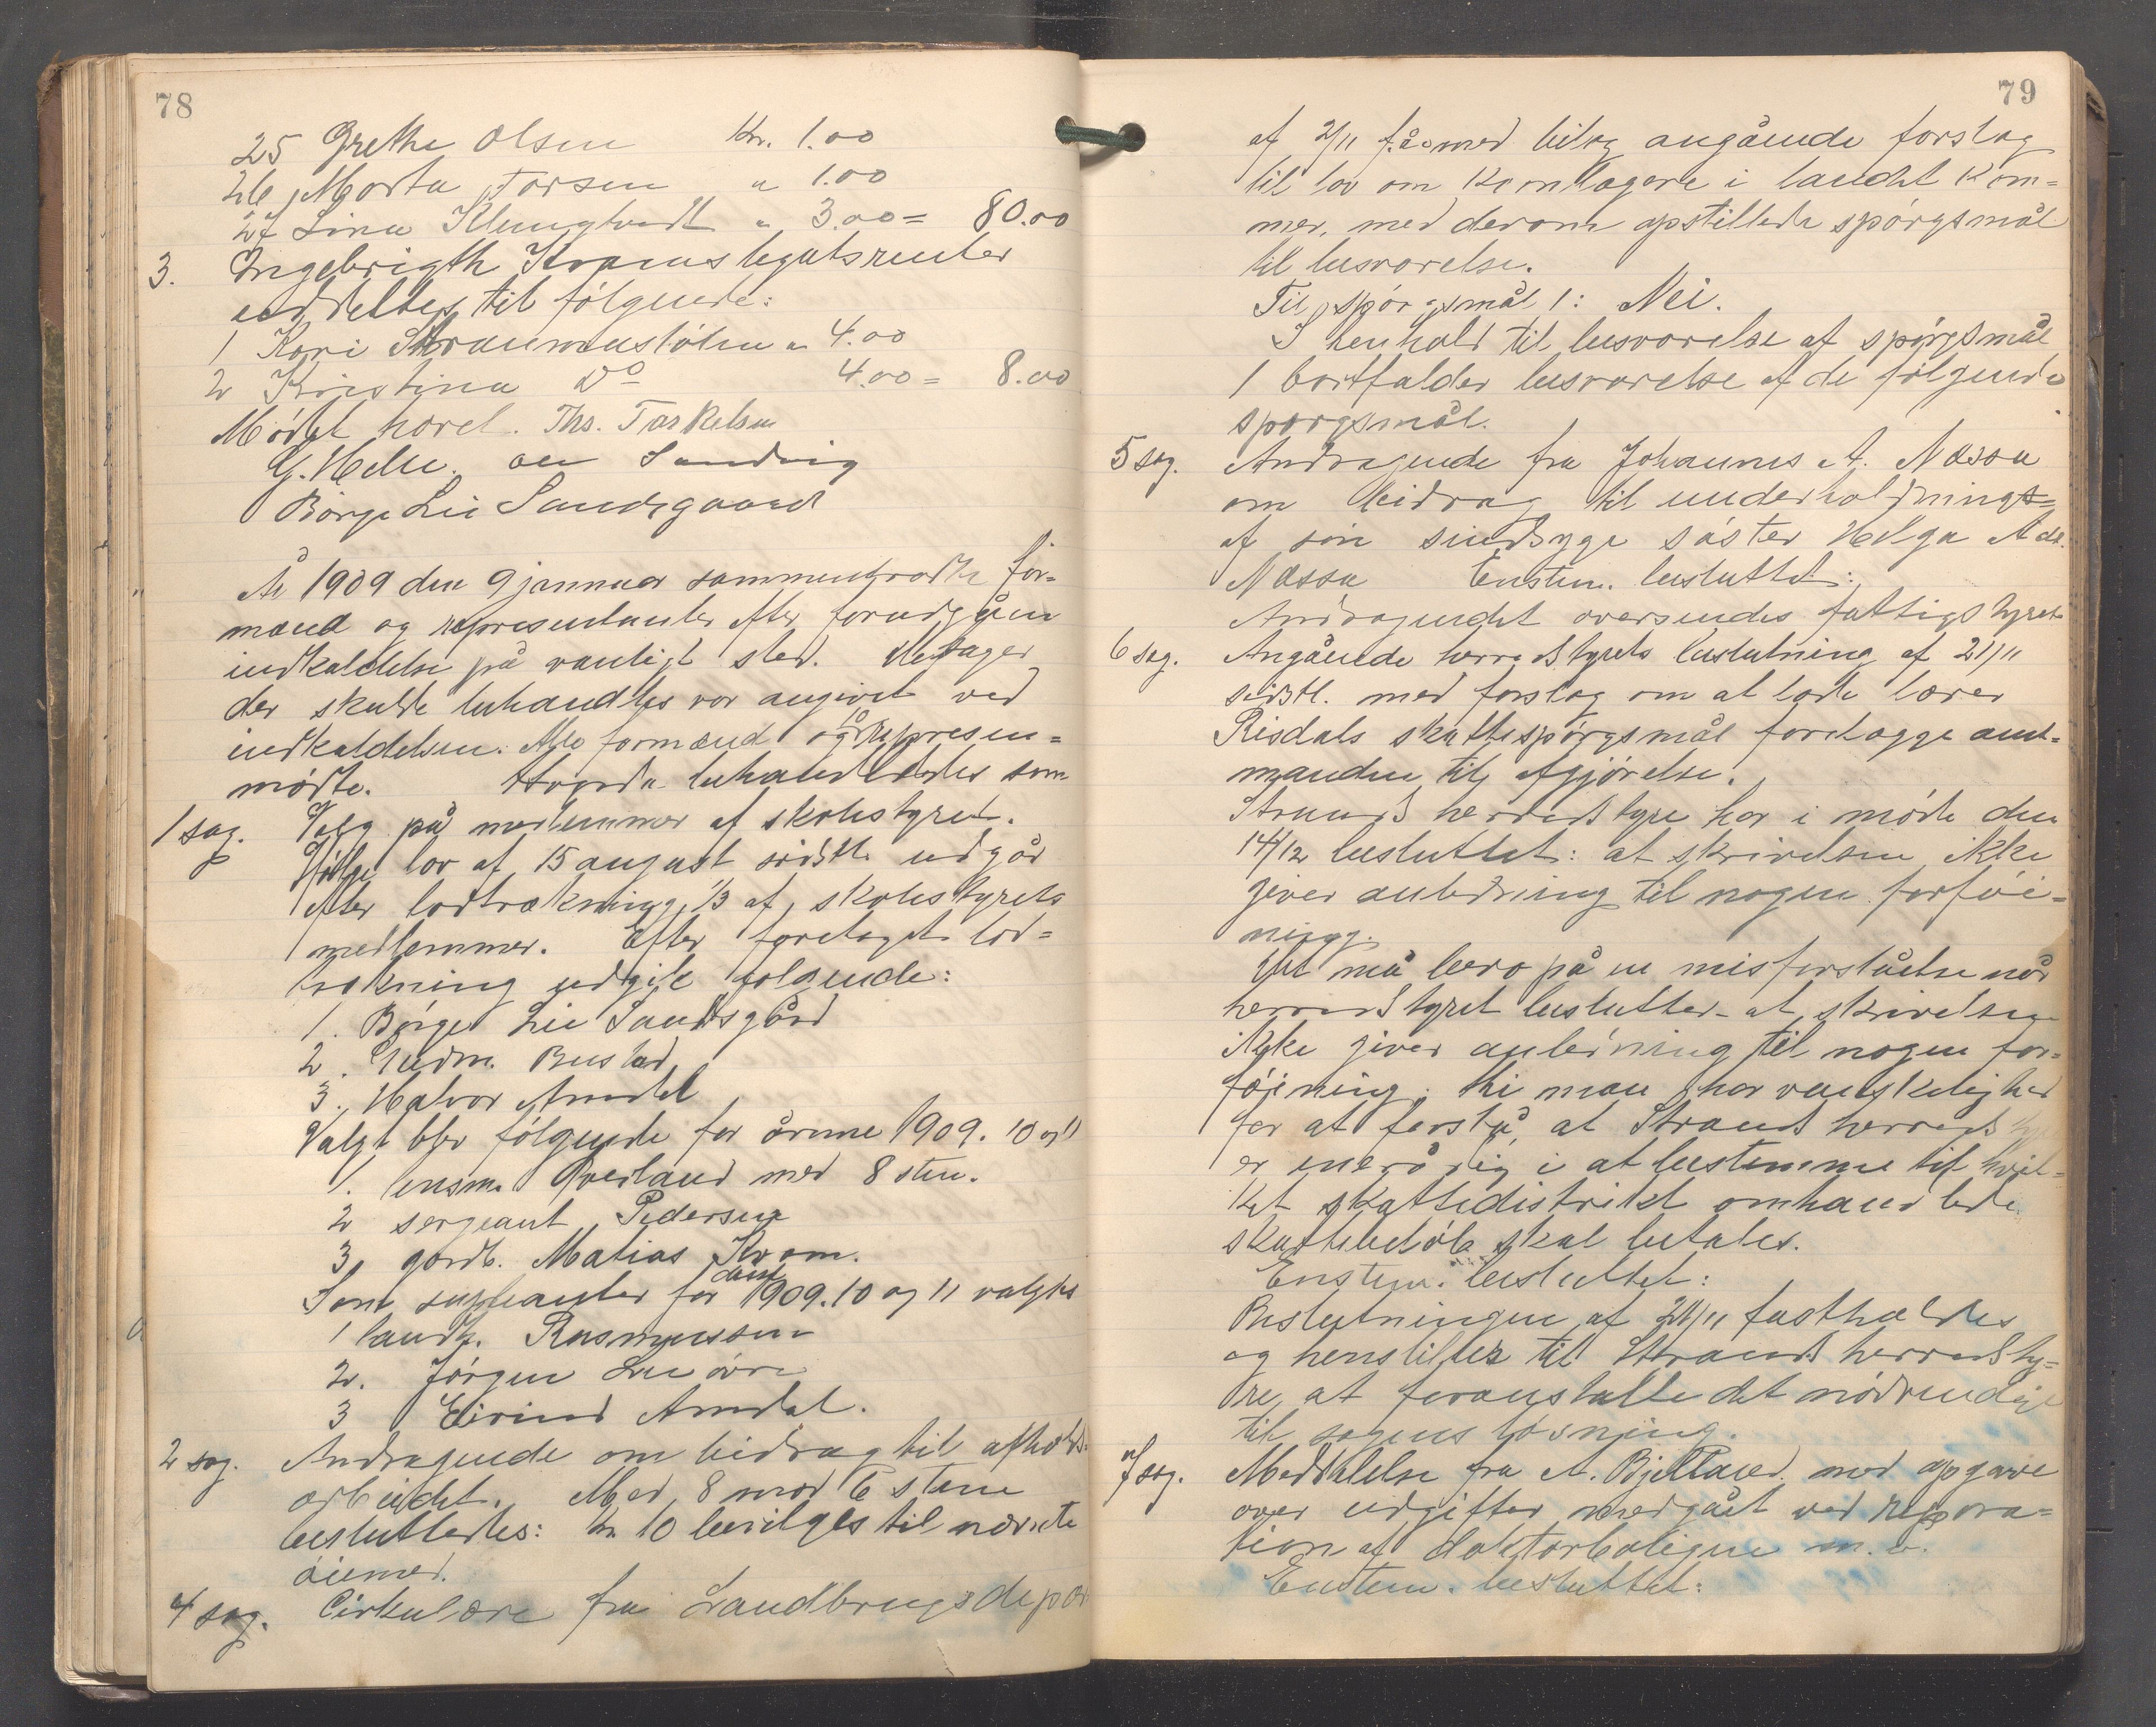 78
25 Grethe Olsen Kr. 1.00
26 Marta Torsen " 1.00
27 Lina Klungtvedt " 3.00 = 80.00
3. Ingebrigth Kvams legatsrenter
uddeltes til følgende:
1 Kari Straumastølen " 4.00
2 Kristina Do 4.00 = 8.00
Mødet hævet. Ths. Tarkelsen
G. Helle. Ole Sandvig
Børge Lie Sandsgaard
År 1909 den 9 januar sammentraadte for=
mænd og representanter efter forudgåen
indkaldelse på vanligt sted. De sager
der skulde behandles var angivet ved
indkaldelsen. Alle formænd og 10 represen=
mødte. Hvorda behandledes som
1 sag. Valg på medlemmer af skolestyret.
Ifølge lov af 15 august sidstl. udgår
efter lodtrækning 1/3 af skolestyrets
medlemmer. Efter foretaget lod=
trækning udgik følgende:
1. Børge Lie Sandsgård
2. Bustad
3. Halvor Amdal
Valgt blev følgende for årene 1909. 10 og 11
1. lensm. Øverland med 8 stm.
2 sergeant Pedersen
3 gardb. Matias Kvam.
Som suppleanter for 1909. 10 og 11 valgtes
1 landh. Rasmussen
2. Jørgen Lie
3 Eivind Amdal.
2 sag. Andragende om bidrag til afholds=
arbeidet. Med 8 mod 6 stem
besluttedes: kr 10 bevilges til nævnte
øiemed.
4 sag. Cirkulære fra Landbrugsdepar
79
af 2/11 f.å. med bilag angående forslag
til lov om Kornlagere i landets Kom=
mer, med derom opstillede spørgsmål
til besvarelse.
Til spørgsmål 1: Nei.
I henhold til besvarelse af spørgsmål
1 bortfalder besvarelse af de følgende
spørgsmål.
5 sag. Andragende fra Johannes A. Næssa
om bidrag til underholdnings=
af sin sindsyge søster Helga A dr.
Næssa Enstem. besluttet:
Andragendet oversendes fattigstyret
6 sag. Angående herredstyrets beslutning af 21/11
sidstl. med forslag om at lade lærer
Risdals skattespørgsmål forelægge amt=
manden til afgjørelse.
Strands herredstyre har i møde den
14/12 besluttet: at skrivelsen ikke
giver anledning til nogen forføi=
ning.
Det må bero på en misforståelse når
herredstyret beslutter at skrivelsen
ikke giver anledning til nogen for=
føining. thi man har vanskelighed
for at forstå, at Strands herreds
er enerådig i at bestemme til hvil=
ket skattedistrikt omhandlede
skattebeløb skal betales.
Enstem. besluttet:
Beslutningen af 21/11 fastholdes
og henstilles til Strands herredsty=
re at foranstalte det nødvendige
til sagens løsning.
7 sag. Meddelelse fra A. Bjelland med opgave
over udgifter medgået ved repara=
tion af doktorboligen m. v.
Enstem. besluttet: